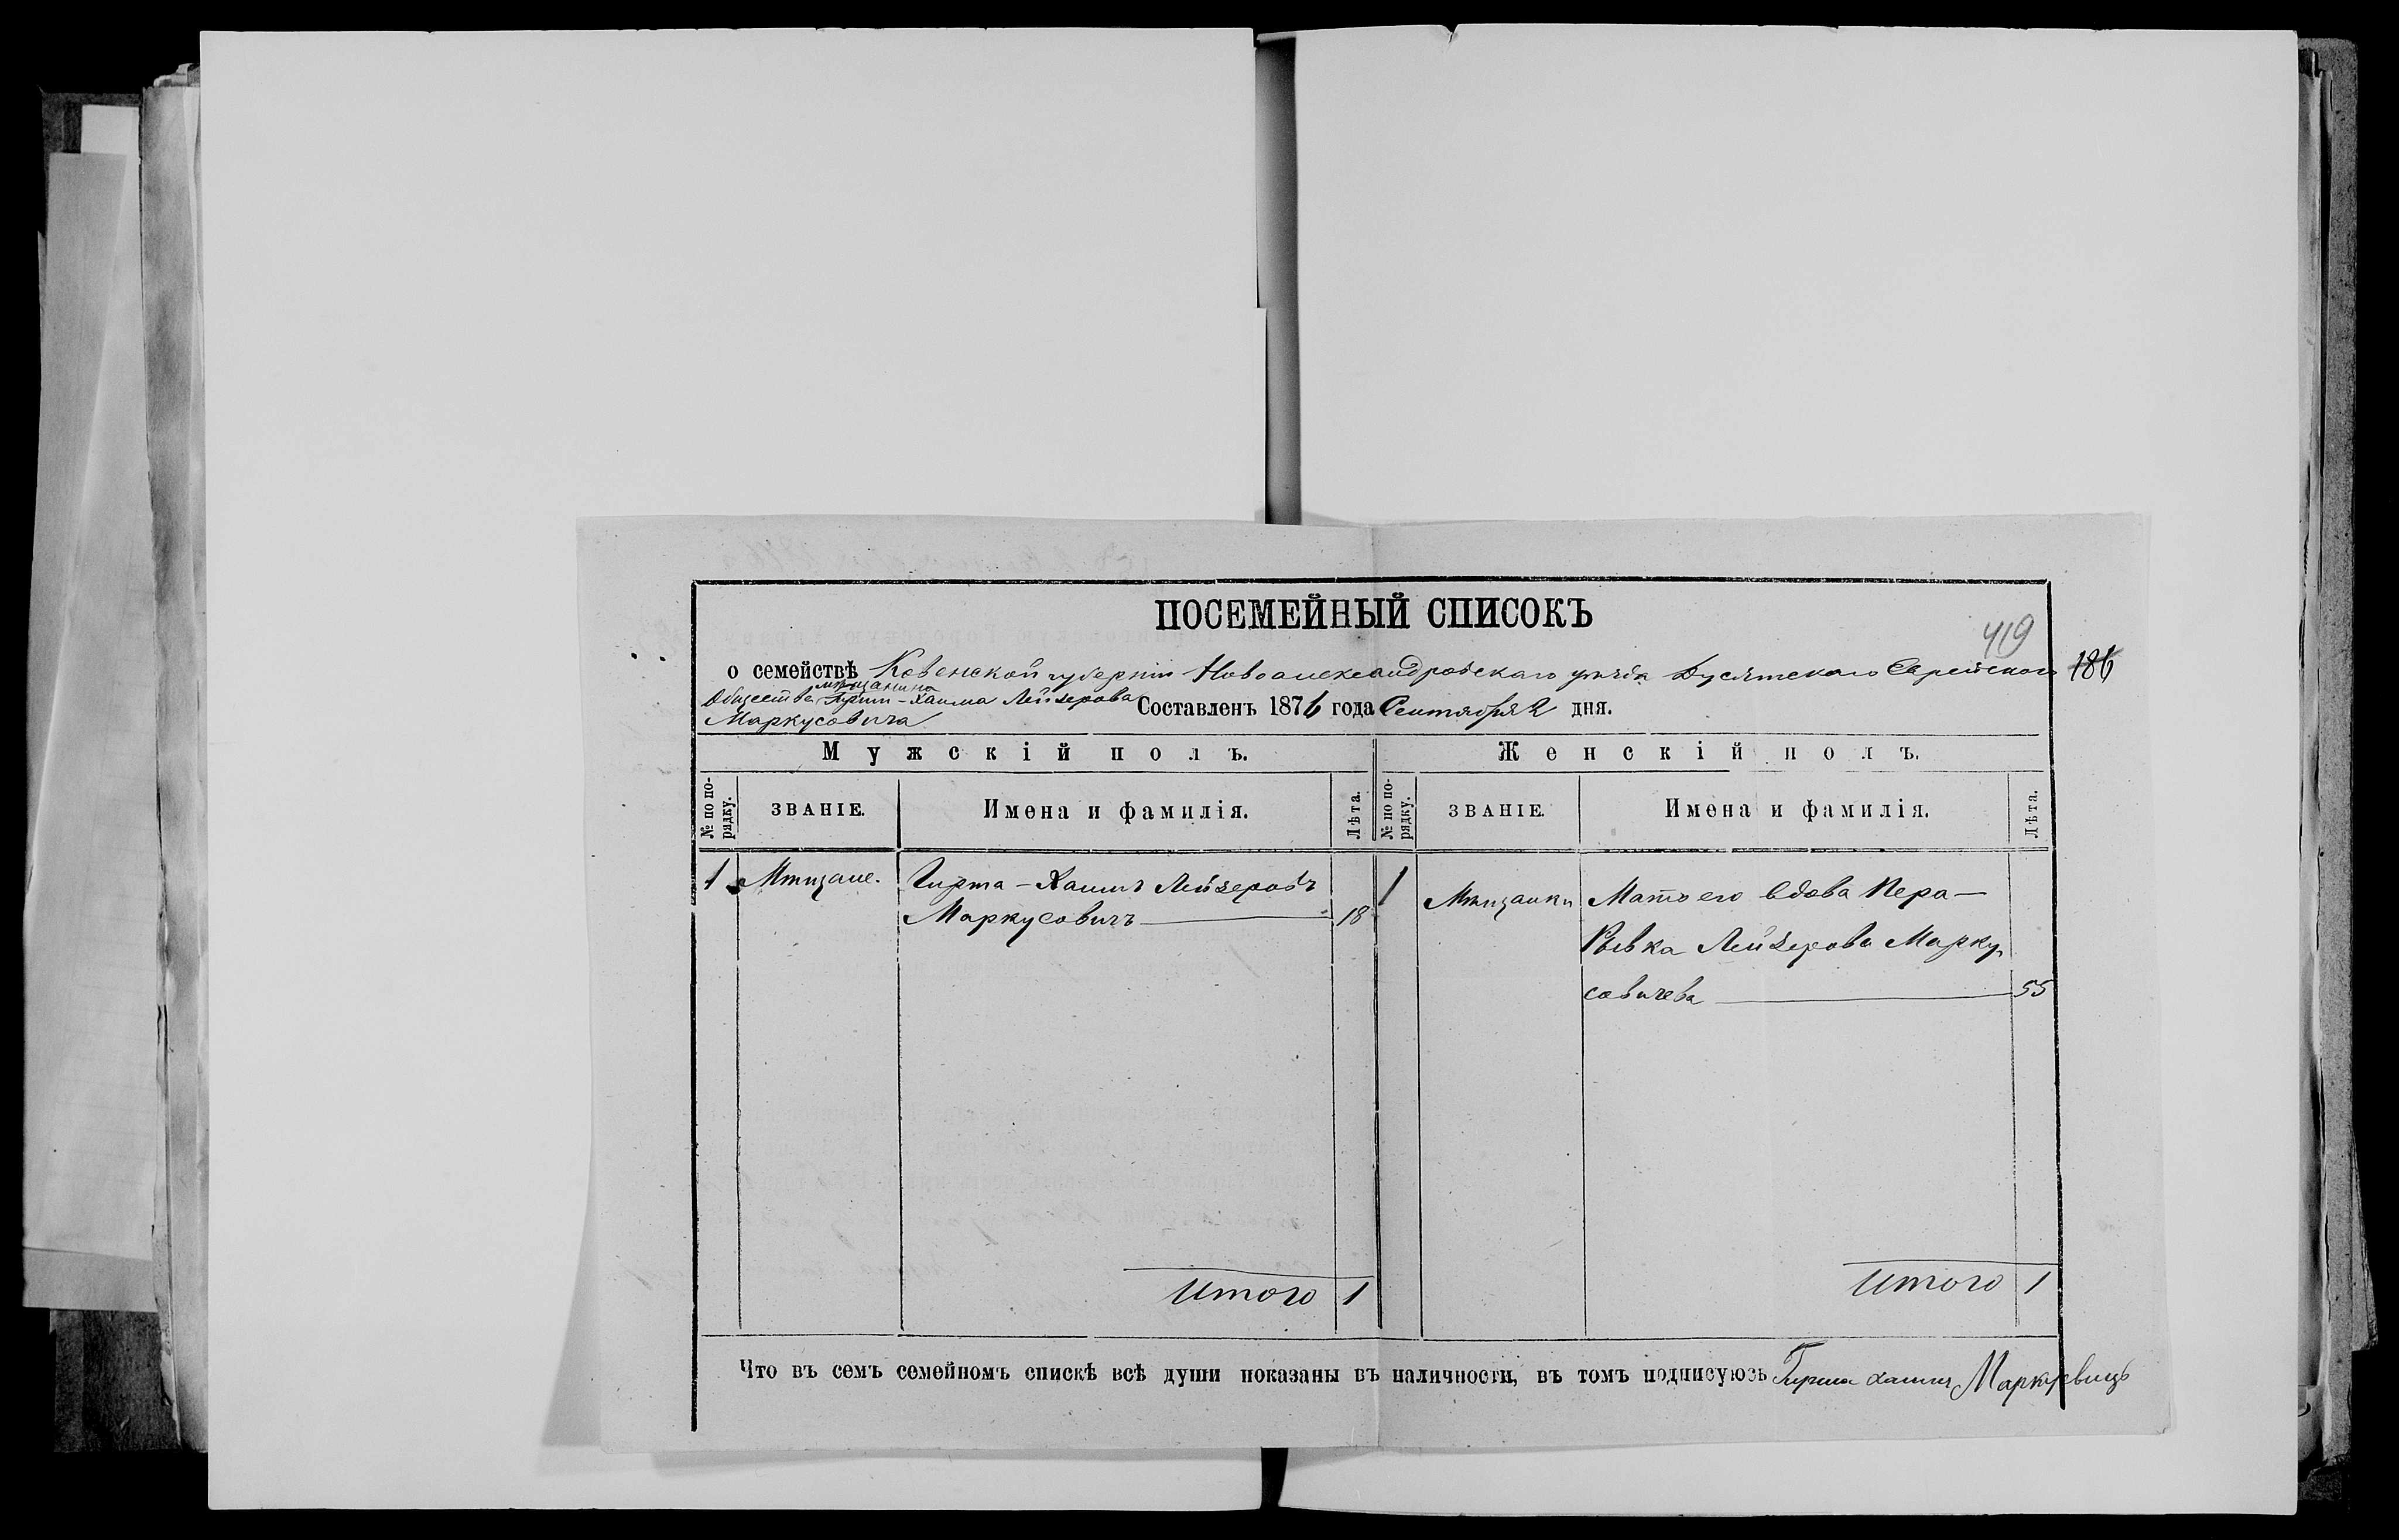 ПОСЕМЕЙНЫЙ СПИСОКЪ
419
о семействѣ Ковенской губерніи Новоалександровскаго уѣзда Дусятскаго Еврейскаго 186
мѣщанина
Общества Гирш-Хаима Лейзерова Составленъ 1876 года Сентября 2 дня.
Маркусовича
Мужскій полъ. Женскій полъ.
№ по порядку. ЗВАНІЕ. Имена и фамилія. Лѣта. № по порядку. ЗВАНІЕ. Имена и фамилія. Лѣта.
1 Мѣщане. Гирша-Хаимъ Лейзеровъ
Маркусовичъ 18
1 Мѣщанки Мать его вдова Пера-
Ривка Лейзерова Марку-
совичева 55
Итого 1
Итого 1
Что въ семъ семейномъ спискѣ всѣ души показаны въ наличности, въ томъ подписуюсь Гирша хаимъ Маркусвицъ